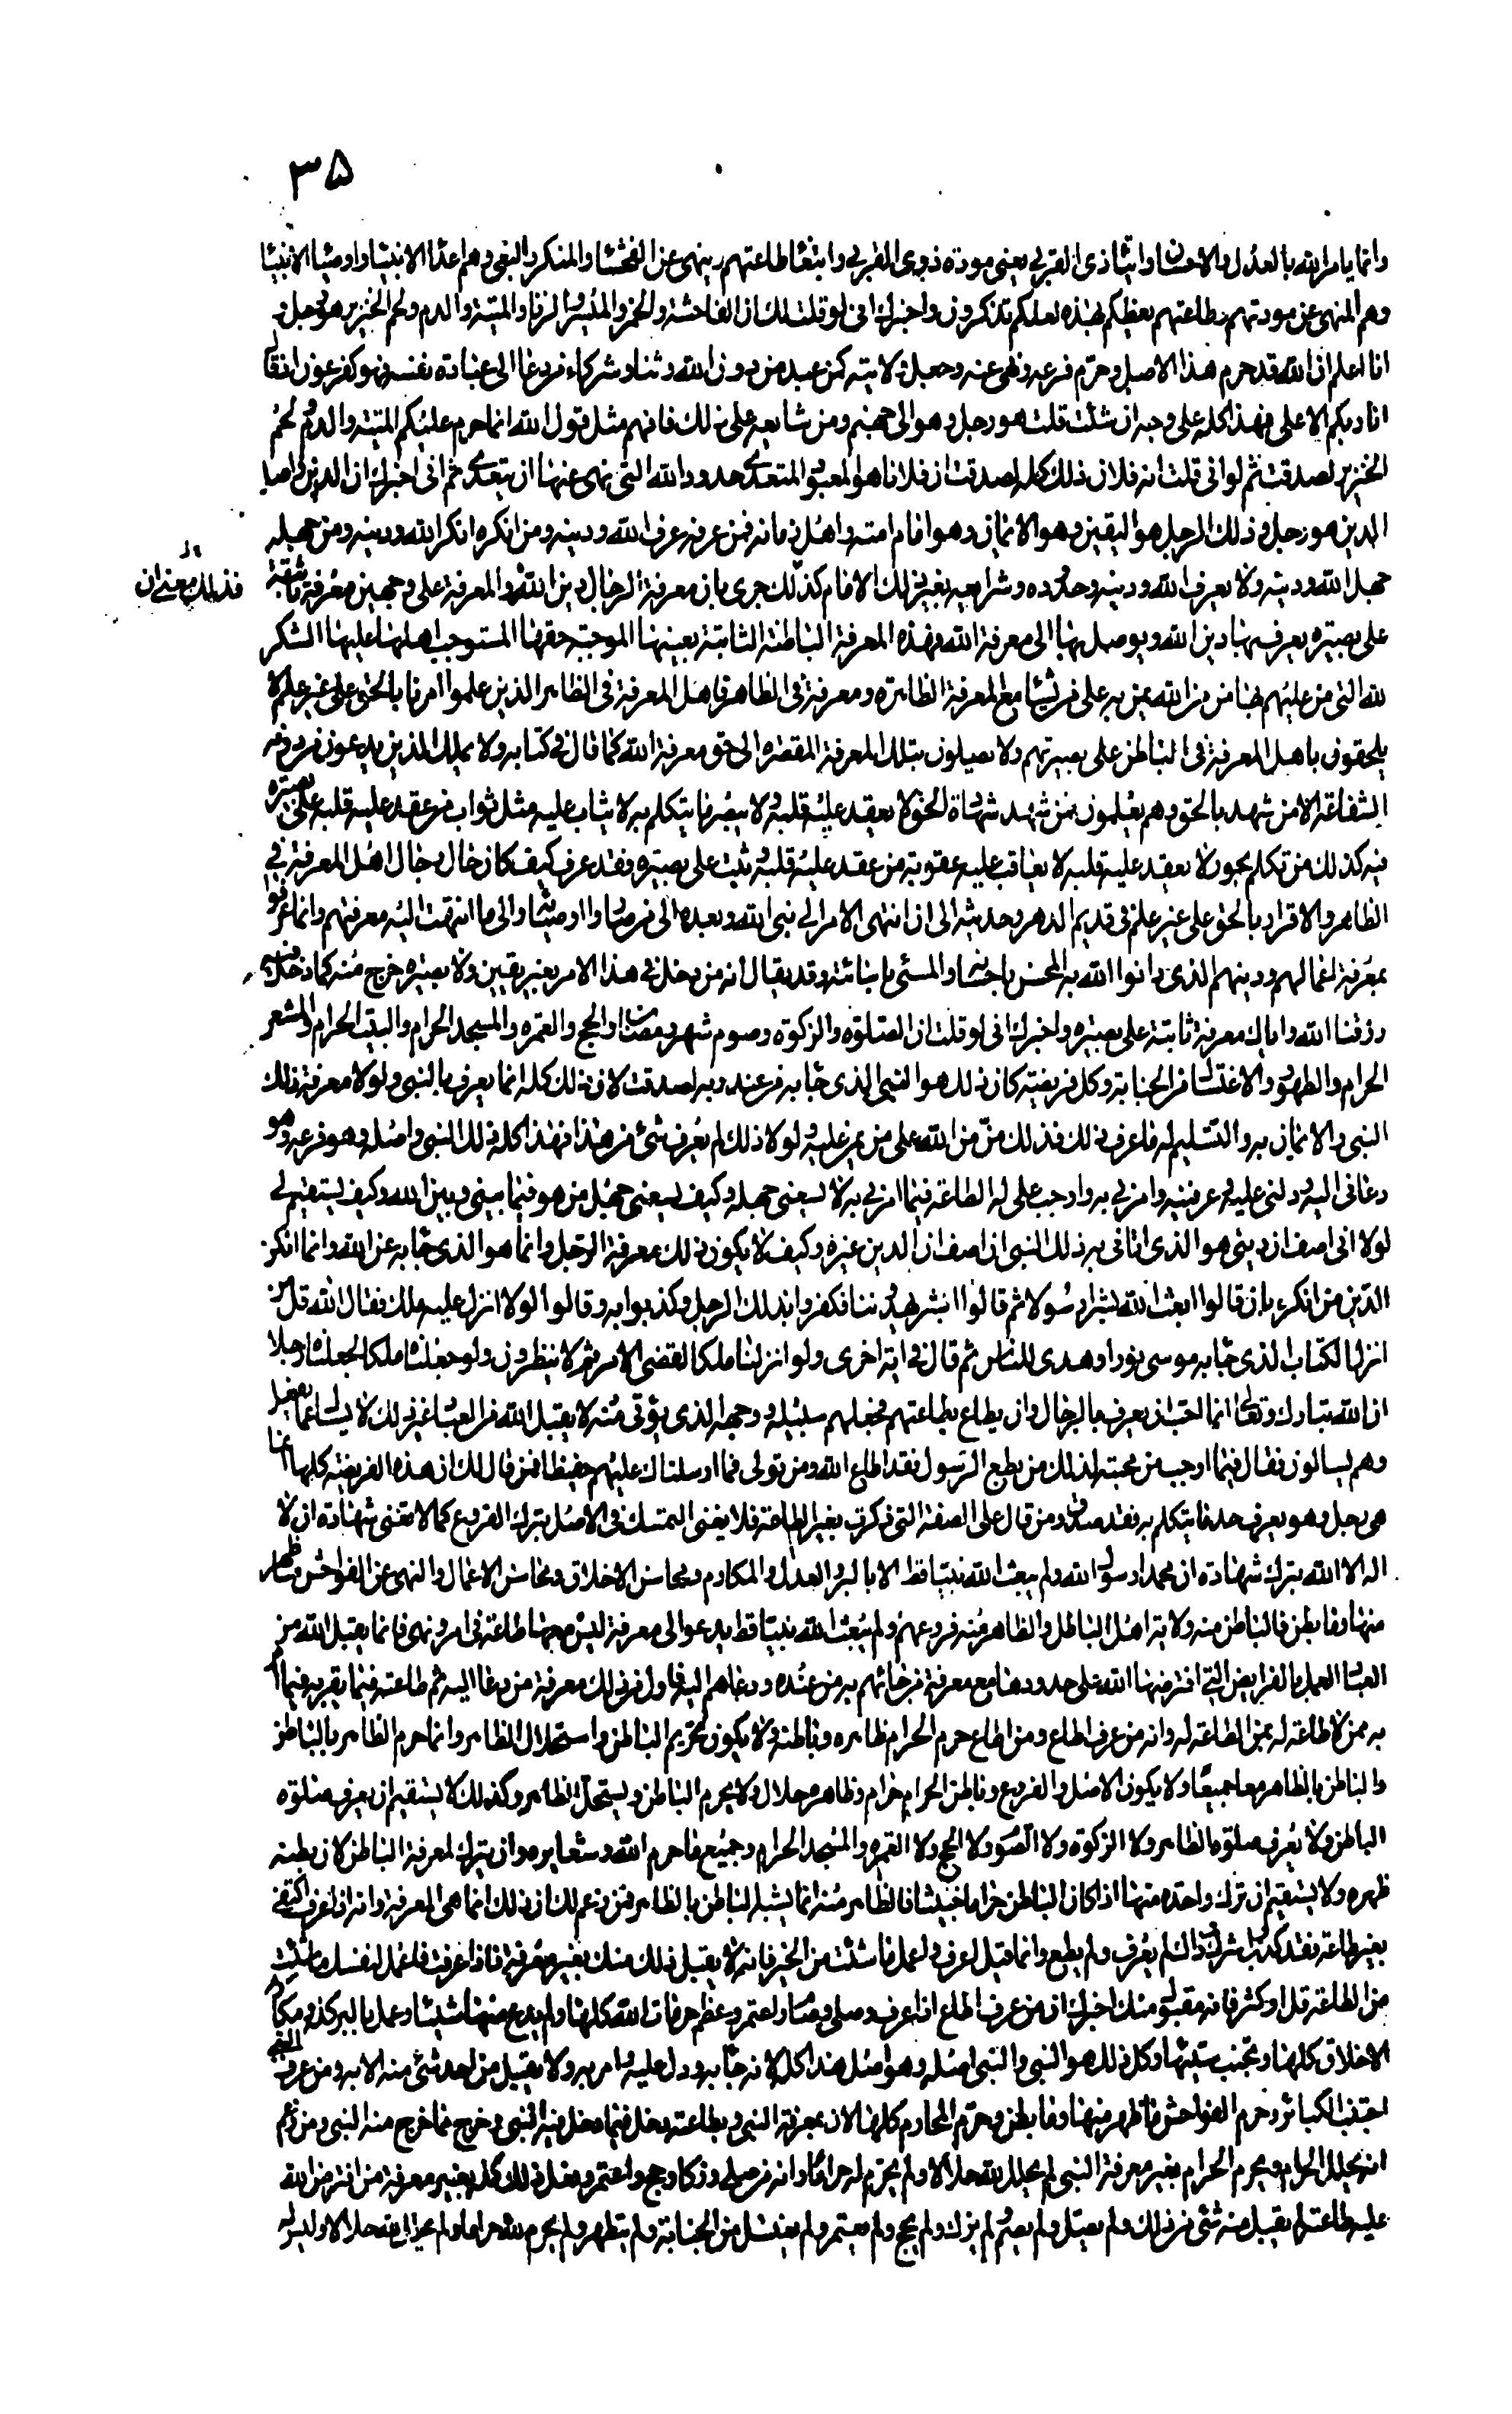 ۳۵
وانما يامر الله بالعدل والاحسان وايتاء ذى القربى يعنى مودة ذوى القربى وابتغاء طاعتهم وينهى عن الفحشاء والمنكر والبغى وهم اعداء الانبياء واوصياء الانبياء
وهم المنهى عن مودتهم وطاعتهم يعظكم بهذه لعلكم تذكرون واخبرك انى لو قلت لك ان الفاحشة والخمر والميسر والزنا والميتة والدم ولحم الخنزير هو رجل و
انا اعلم ان الله قد حرم هذا الاصل وحرم فرعه ونهى عنه وجعل ولايته كمن عبد من دون الله وثنا وشركاء ومن دعا الى عبادة نفسه فهو كفرعون اذ قال
انا ربكم الاعلى فهذا كله على وجه ان شئت قلت هو رجل وهو الى جهنم ومن شايعه على ذلك فانهم مثل قول الله انما حرم عليكم الميتة والدم ولحم
الخنزير لصدقت ثم لو انى قلت انه فلان ذلك كله لصدقت ان فلانا هو المعبود المتعدى حدود الله التى نهى عنها ان يتعدى ثم انى اخبرك ان الدين واصل
الدين هو رجل وذلك الرجل هو اليقين وهو الايمان وهو امام امته واهل زمانه فمن عرفه عرف الله ودينه ومن انكره انكر الله ودينه ومن جهله
جهل الله ودينه ولا يعرف الله ودينه وحدوده وشرايعه بغير ذلك الامام كذلك جرى بان معرفة الرجال دين الله والمعرفة على وجهين معرفة ثابتة
فذلك معنى ان
على بصيرة يعرف بها دين الله ويوصل بها الى معرفة الله فهذه المعرفة الباطنة الثابتة بعينها الموجبة حقها المستوجب اهلها عليها الشكر
لله التى من عليهم بها من من الله يمن به على من يشاء مع المعرفة الظاهرة ومعرفة فى الظاهر فاهل المعرفة فى الظاهر الذين علموا امرنا بالحق على غير علم لا
يلحقون باهل المعرفة فى الباطن على بصيرتهم ولا يصلون بتلك المعرفة المقصرة الى حق معرفة الله كما قال فى كتابه ولا يملك الذين يدعون من دونه
الشفاعة الا من شهد بالحق وهم يعلمون فمن شهد شهادة الحق لا يعقد عليه قلبه ولا يبصر ما يتكلم به لا يثاب عليه مثل ثواب من عقد عليه قلبه على بصيرة
فيه كذلك من تكلم بجور لا يعقد عليه قلبه لا يعاقب عليه عقوبة من عقد عليه قلبه وثبت على بصيرة فقد عرف كيف كان حال رجال اهل المعرفة فى
الظاهر والاقرار بالحق على غير علم فى قديم الدهر وحديثه الى ان انتهى الامر الى نبى الله وبعده الى من صاروا اوصياء والى ما انتهت اليه معرفتهم وانما عرفوا
بمعرفة اعمالهم ودينهم الذى دانوا الله به المحسن باحسانه والمسئ باسائته وقد يقال انه من دخل فى هذا الامر بغير يقين ولا بصيرة خرج منه كما دخل فيه
رزقنا الله واياك معرفة ثابتة على بصيرة واخبرك انى لو قلت ان الصلوة والزكوة وصوم شهر رمضان والحج والعمرة والمسجد الحرام والبيت الحرام والمشعر
الحرام والطهور والاغتسال من الجنابة وكل فريضة كان ذلك هو النبى الذى جاء به من عند ربه لصدقت لان ذلك كله انما يعرف بالنبى ولولا معرفة ذلك
النبى والايمان به والتسليم له ما عرف ذلك فذلك من من الله على من يمن عليه ولولا ذلك لم يعرف شئ من هذا فهذا كله ذلك النبى واصله وهو فرعه وهو
دعانى اليه ودلنى عليه وعرفنيه وامرنى به واوجب على له الطاعة فيما امرنى به لا يسعنى جهله وكيف يسعنى جهل من هو فيما بينى وبين الله وكيف يستقيم لى
لولا انى اصف ان دينى هو الذى اتانى به ذلك النبى ان اصف ان الدين غيره وكيف لا يكون ذلك معرفة الرجل وانما هو الذى جاء به عن الله وانما انكر
الدين من انكره بان قالوا ابعث الله بشرا رسولا ثم قالوا ابشر يهدوننا فكفروا بذلك الرجل وكذبوا به وقالوا لولا انزل عليه ملك فقال الله قل من
انزل الكتاب الذى جاء به موسى نورا وهدى للناس ثم قال فى اية اخرى ولو انزلنا ملكا لقضى الامر ثم لا ينظرون ولو جعلناه ملكا لجعلناه رجلا
ان الله تبارك وتعالى انما احب ان يعرف بالرجال وان يطاع بطاعتهم فجعلهم سبيله ووجهه الذى يؤتى منه لا يقبل الله من العباد غير ذلك لا يسال عما يفعل
وهم يسالون فقال فيما اوجب من محبته لذلك من يطع الرسول فقد اطاع الله ومن تولى فما ارسلناك عليهم حفيظا فمن قال لك ان هذه الفريضة كلها انما
هى رجل وهو يعرف حد ما يتكلم به فقد صدق ومن قال على الصفة التى ذكرت بغير الطاعة فلا يغنى التمسك فى الاصل بترك الفروع كما لا تغنى شهادة ان لا
اله الا الله بترك شهادة ان محمدا رسول الله ولم يبعث الله نبيا قط الا بالبر والعدل والمكارم ومحاسن الاخلاق ومحاسن الاعمال والنهى عن الفواحش ما ظهر
منها وما بطن فالباطن منه ولاية اهل الباطل والظاهر منه فروعهم ولم يبعث الله نبيا قط يدعو الى معرفة ليس معها طاعة فى امر ونهى فانما يقبل الله من
العباد العمل بالفرايض التى افترضها الله على حدودها مع معرفة من جائهم به من عنده ودعاهم اليه فاول من ذلك معرفة من دعا اليه ثم طاعته فيما يقربه فيما امر
به ممن لا طاعة له بمن الطاعة له وانه من عرف اطاع ومن اطاع حرم الحرام ظاهره وباطنه ولا يكون تحريم الباطن واستحلال الظاهر وانما حرم الظاهر بالباطن
والباطن بالظاهر معا جميعا ولا يكون الاصل والفروع وباطن الحرام حرام وظاهره حلال ولا يحرم الباطن ويستحل الظاهر وكذلك لا يستقيم ان يعرف صلوة
الباطن ولا يعرف صلوة الظاهر ولا الزكوة ولا الصوم ولا الحج ولا العمرة والمسجد الحرام وجميع ما حرم الله وشعايره وان يترك لمعرفة الباطن لان بطنه
ظهره ولا يستقيم ان ترك واحدة منها اذا كان الباطن حراما خبيثا فالظاهر منه انما يشبه الباطن بالظاهر فمن زعم لك ان ذلك انما هى المعرفة وانه اذا عرف اكتفى
بغير طاعة فقد كذب واشرك ذاك لم يعرف ولم يطع وانما قيل اعرف واعمل ما شئت من الخير فانه لا يقبل ذلك منك بغير معرفة فاذا عرفت فاعمل لنفسك ما شئت
من الطاعة قل او كثر فانه مقبول منك اخبرك ان من عرف اطاع اذا عرف وصلى وصام واعتمر وعظم حرمات الله كلها ولم يدع منها شيئا وعمل بالبر كله ومكارم
الاخلاق كلها وتجنب سيئها وكل ذلك هو النبى والنبى اصله وهو اصل هذا كله لانه جاء به ودل عليه وامر به ولا يقبل من احد شئ منه الا به ومن عرف النبى
اجتنب الكبائر وحرم الفواحش ما ظهر منها وما بطن وحرم المحارم كلها لان بمعرفة النبى وبطاعته دخل فيما دخل فيه النبى وخرج مما خرج منه النبى ومن زعم
انه يحلل الحلال ويحرم الحرام بغير معرفة النبى لم يحلل الله حلالا ولم يحرم له حراما وانه من صلى وزكا وحج واعتمر وفعل ذلك كله بغير معرفة من افترض الله
عليه طاعته لم يقبل منه شئ من ذلك ولم يصل ولم يصم ولم يزك ولم يحج ولم يعتمر ولم يغتسل من الجنابة ولم يتطهر ولم يحرم لله حراما ولم يحل لله حلالا وليس له